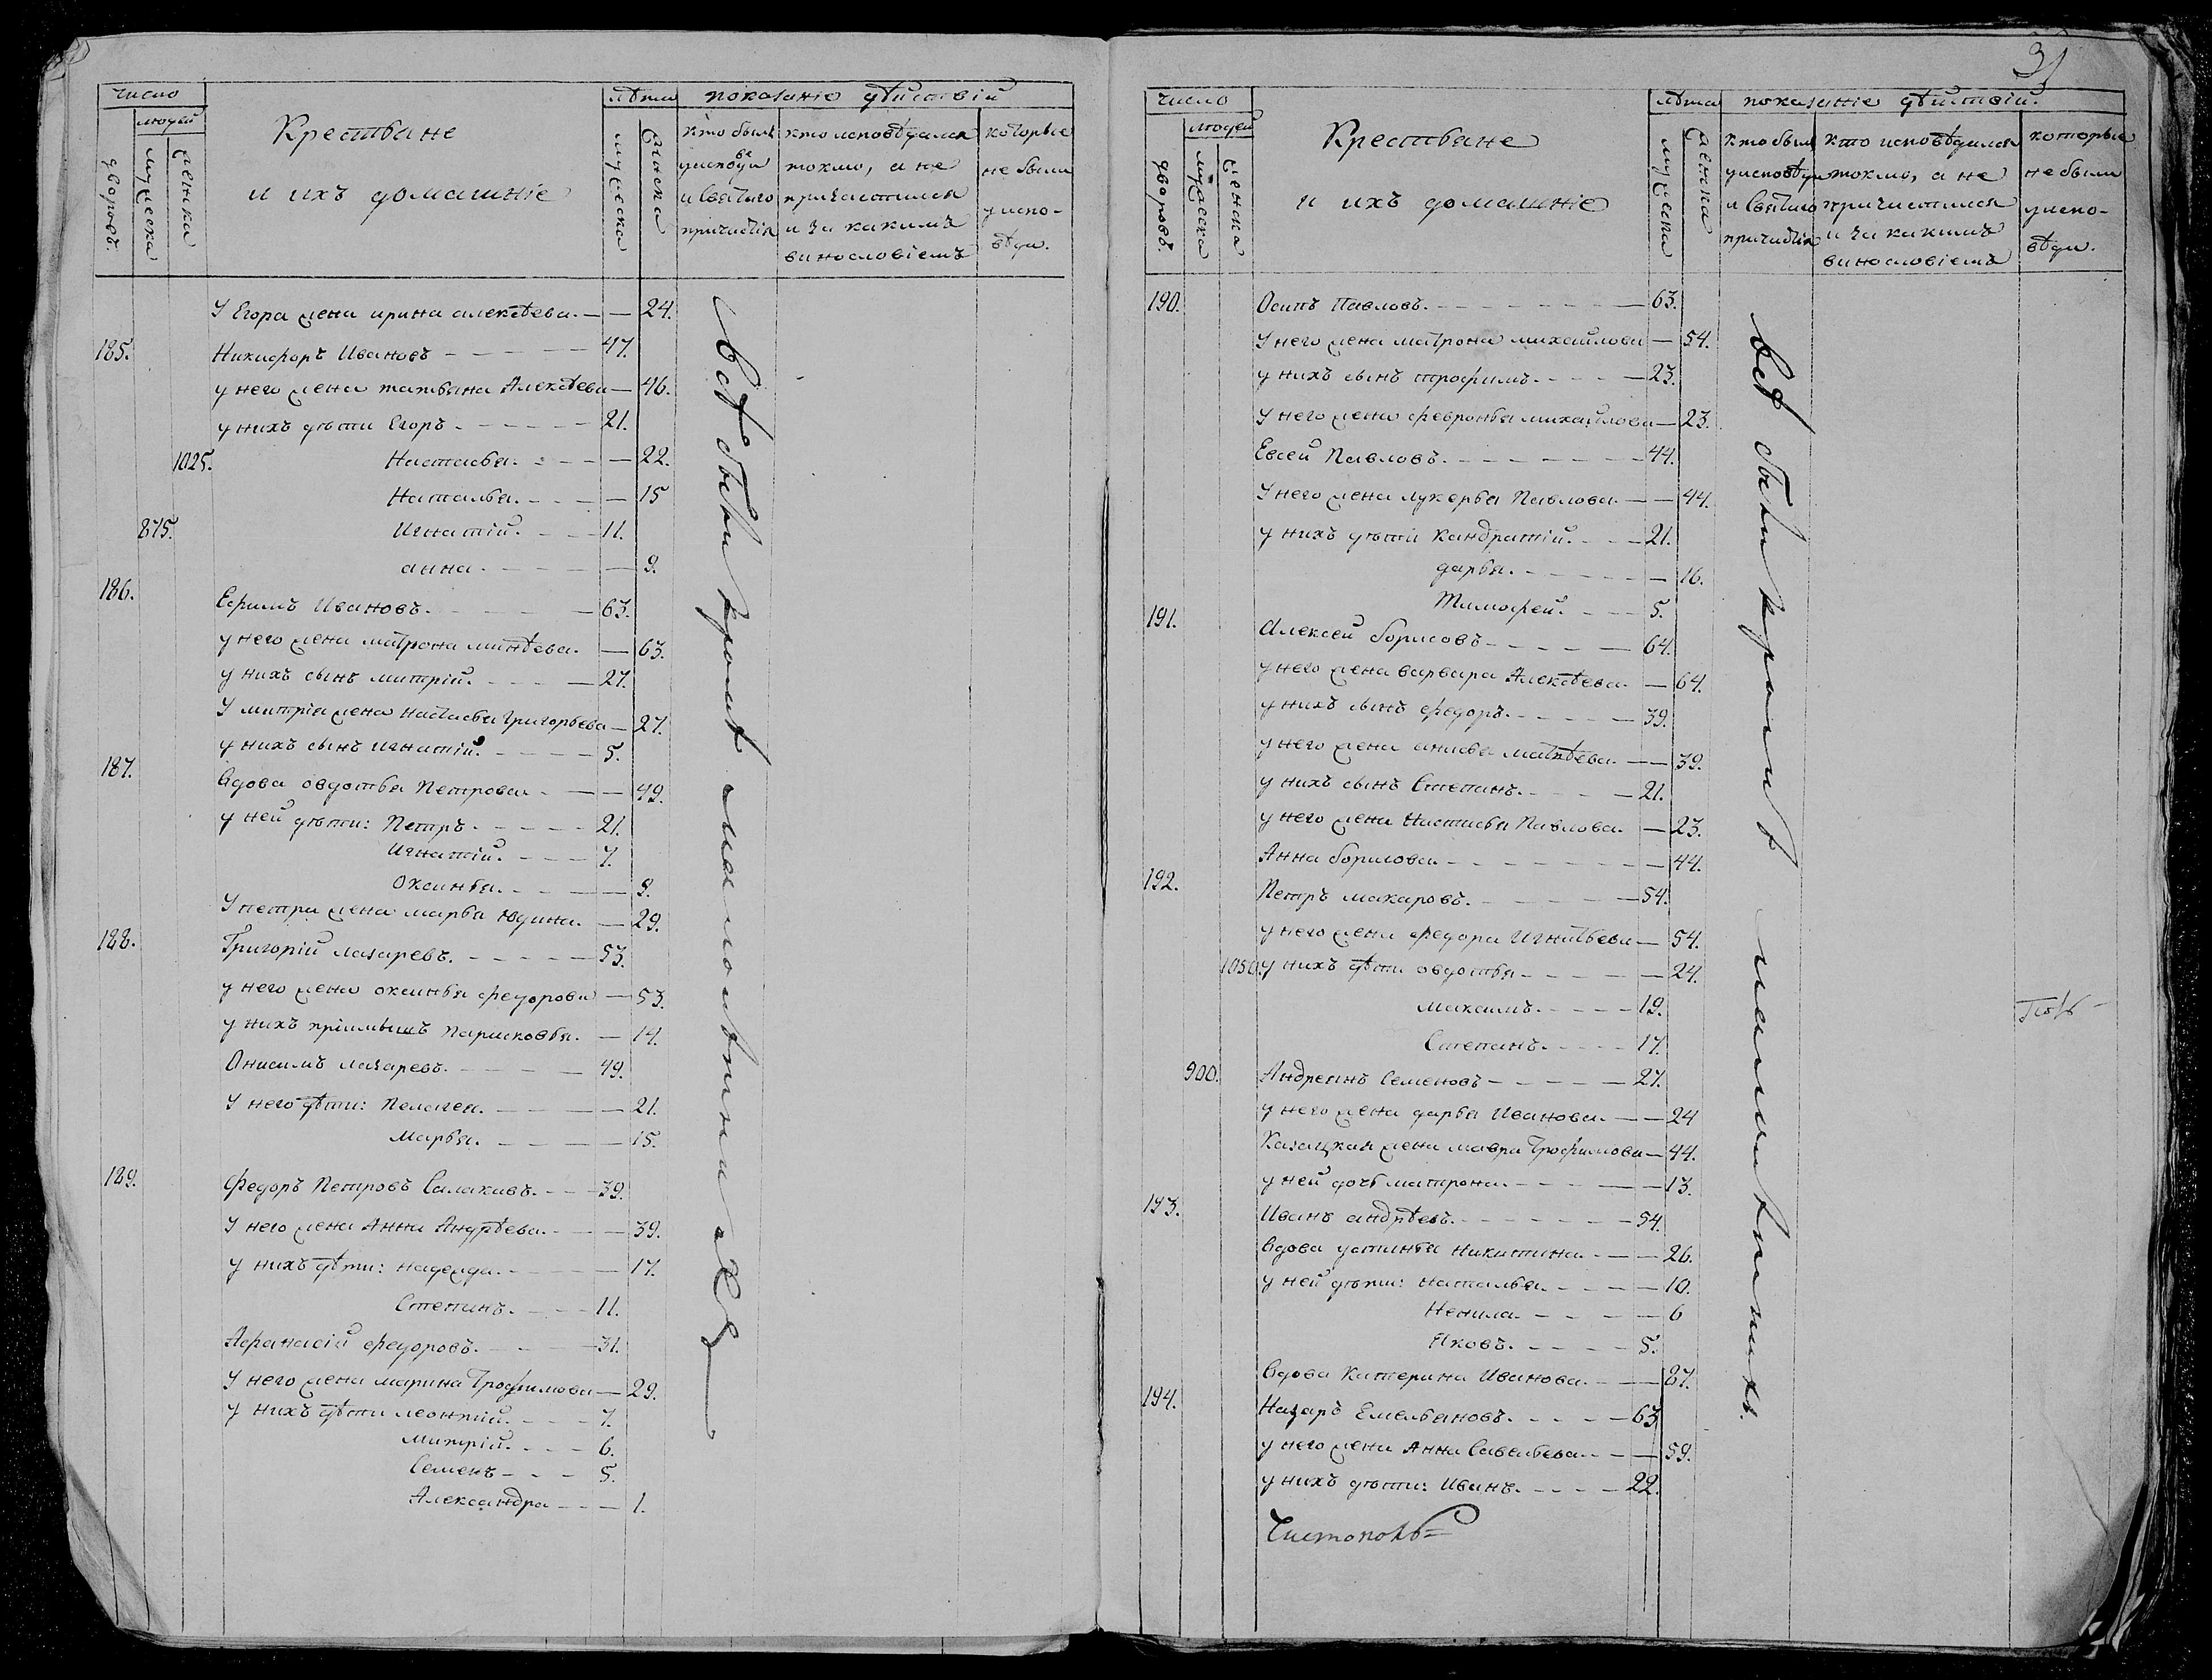 число
людей
дворовъ.
мужеска
женска
Крестьяне
и ихъ домашніе
лѣта
мужеска
женска
показаніе дѣйствій
кто былъ
у исповѣди
и Святаго
причастія
кто исповѣдался
токмо, а не
причастился
и за какимъ
винословіемъ
которые
не были
у испо-
вѣди.
У Егора жена ирина алексѣева. — — 24.
185. Никифоръ Ивановъ — — — 47.
у него жена татьяна Алексѣева — 46.
у нихъ дѣти Егоръ — — — 21.
1025. Настасья. — — — 22.
Наталья. — — — 15
875. Игнатій. — — 11.
анна. — — — 9.
186. Ефимъ Ивановъ. — — — 63.
у него жена матрона минѣева. — 63.
у нихъ сынъ митрій. — — — 27.
У митрія жена настасья григорьева — 27.
у нихъ сынъ игнатій. — — — 5.
187. вдова овдотья Петрова. — — 49.
у ней дѣти: Петръ. — — — 21.
Игнатій. — — — 7.
Оксинья. — — — 9.
У петра жена марья юдина. — 29.
188. Григорій лазаревъ. — — — 53.
у него жена оксинья федорова — 53.
у нихъ пріимышъ парасковья. — 14.
Онисимъ лазаревъ. — — — 49.
У него дѣти: Пелагея. — — — 21.
Марья. — — — 15.
189. Федоръ Петровъ — — 39.
У него жена Анна Андрѣева. — — 39.
у нихъ дѣти: надежда. — — — 17.
Степанъ. — — — 11.
Афанасій федоровъ. — — — 31.
У него жена марина Трофимова — 29.
у нихъ дѣти леонтій. — — — 7.
Митрій. — — — 6.
Семенъ — — — 5.
Александра — — — 1.
всѣ были кромѣ малолѣтнихъ
31
число
людей
дворовъ.
мужеска
женска
Крестьяне
и ихъ домашніе
лѣта
мужеска
женска
показаніе дѣйствій.
кто былъ
у исповѣди
и Святаго
причастія
кто исповѣдался
токмо, а не
причастился
и за какимъ
винословіемъ
которые
не были
у испо-
вѣди.
190. Осипъ Павловъ. — — — 63.
У него жена матрона михайлова — 54.
у нихъ сынъ трофимъ. — — — 23.
У него жена февронья михайлова — 23.
Евсей Павловъ. — — — 44.
У него жена лукерья Павлова. — — 44.
у нихъ дѣти кандратій. — — — 21.
дарья. — — — 16.
Тимофей. — — — 5.
191. Алексей борисовъ — — — 64.
у него жена варвара Алексѣева. — 64.
у нихъ сынъ федоръ. — — — 39.
у него жена анисья матвѣева. — — 39.
у нихъ сынъ Степанъ. — — — 21.
у него жена Настасья Павлова. — 23.
Анна борисова. — — — 44.
192. Петръ макаровъ. — — — 54.
у него жена федора Игнатьева — 54.
1050. у нихъ дѣти овдотья — — — 24.
максимъ. — — — 19.
Степанъ. — — — 17.
900. Андреянъ Семеновъ — — — 27.
у него жена дарья Иванова. — — 24
Казацкая жена мавра Трофимова — 44.
у ней дочь матрона. — — — 13.
193. Иванъ андрѣевъ. — — — 54.
вдова устинья никитина. — — 26.
у ней дѣти: наталья. — — — 10.
Ненила. — — — 6
Яковъ. — — — 5.
вдова Катерина Иванова. — — 87.
194. Назаръ Емельяновъ. — — — 63
у него жена Анна Савельева. — — 59.
у нихъ дѣти: Иванъ. — — — 22.
Чистополь=
всѣ были кромѣ малолѣтнихъ.